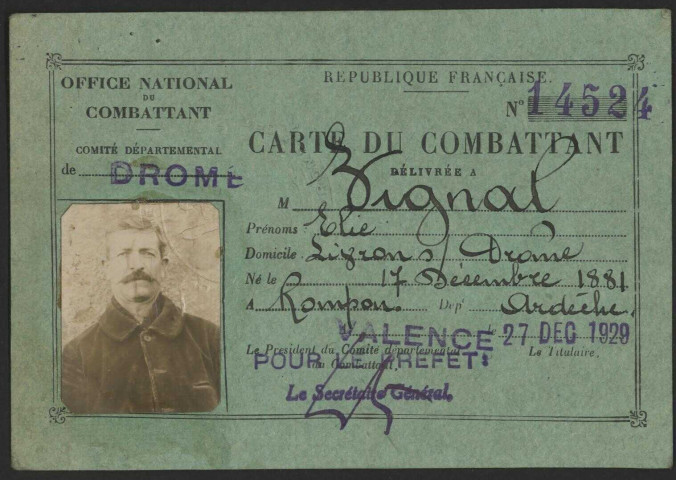 OFFICE NATIONAL
DU
COMBATTANT
COMITÉ DÉPARTEMENTAL
de DROME
REPUBLIQUE FRANÇAISE.
N° 14524
CARTE DU COMBATTANT
DÉLIVRÉE A
M Vignal
Prénoms Elie
Domicile
Né le 17 Décembre 1881
A Rompon. Dep' Ardèche.
VALENCE le 27 DEC 1929
Le Président du Comité départemental
du Combattant,
Le Titulaire,
POUR LE PREFET:
Le Secrétaire Général.